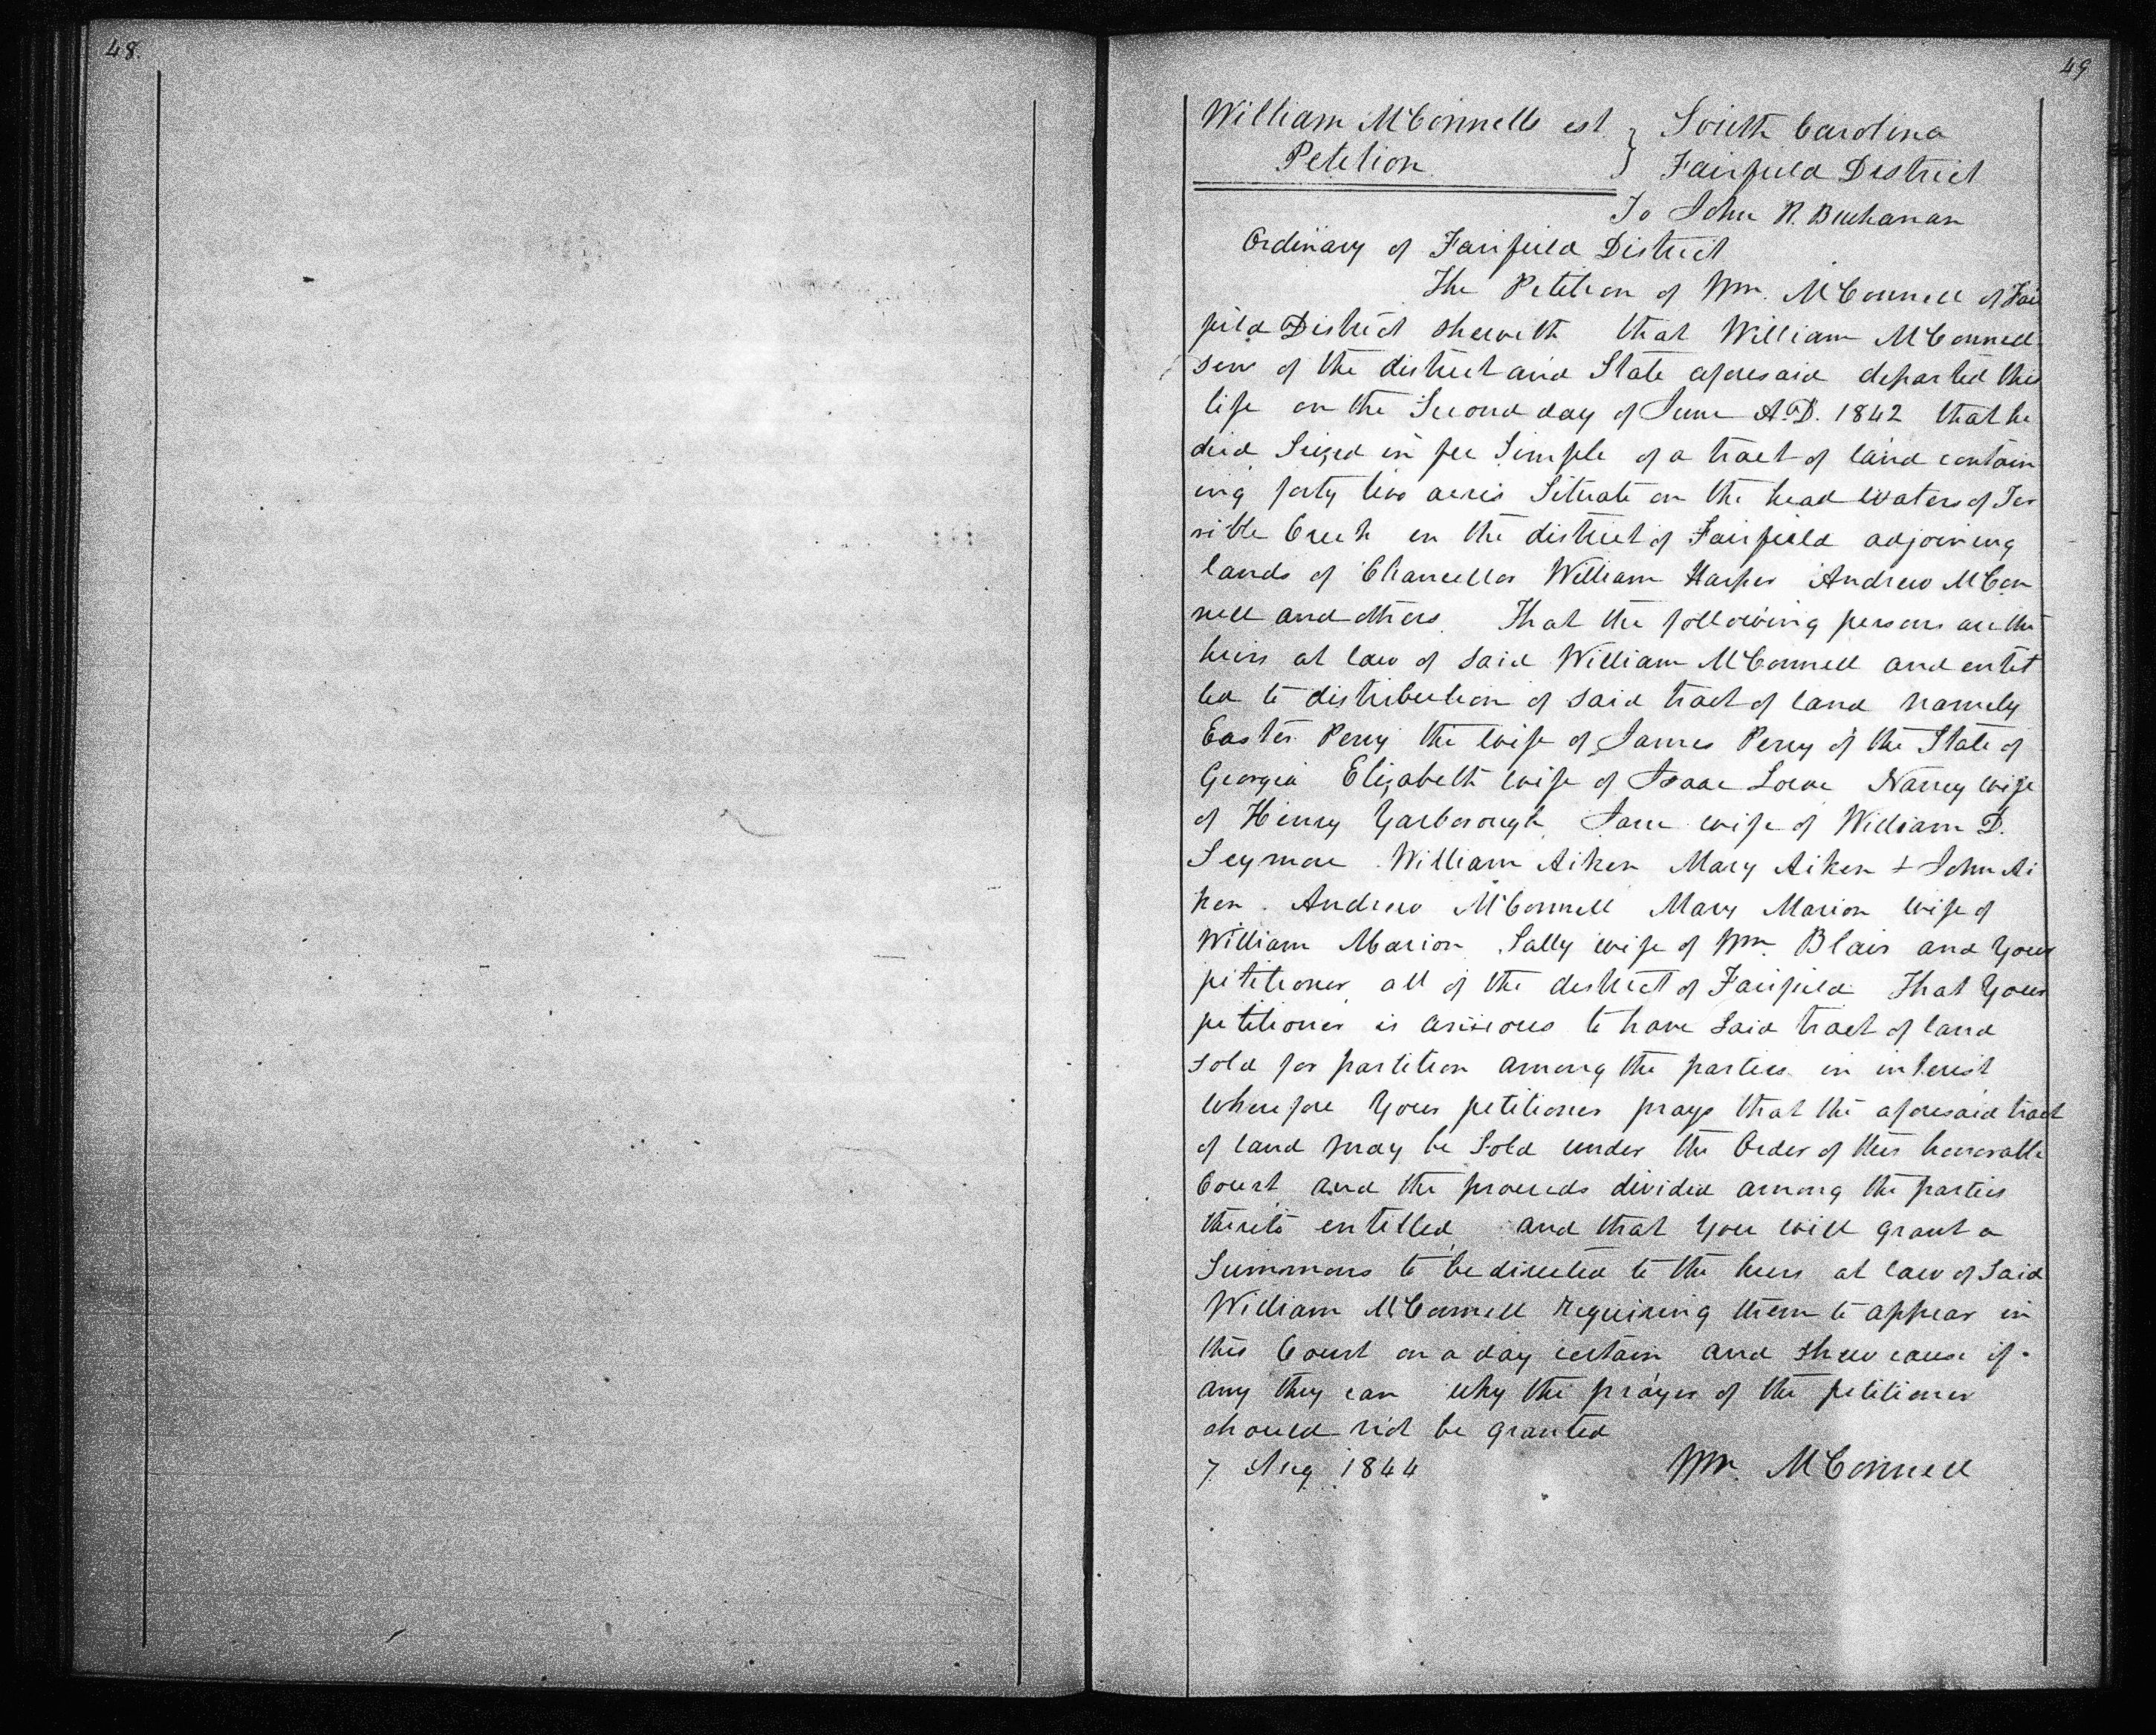 48.
49
William McConnells est } South Carolina
Petition } Fairfield District
To John R. Buchanan
Ordinary of Fairfield District
The Petition of Wm. McConnell of Fair
field District sheweth that William McConnell
Senr of the district and State aforesaid departed this
life on the Second day of June A.D. 1842 that he
died Seized in fee Simple of a tract of land contain
ing forty two acres Situate on the head waters of Ter
rible Creek in the district of Fairfield adjoining
lands of Chancellor William Harper Andrew McCon
nell and others. That the following persons are the
heirs at law of said William McConnell and entit
led to distribution of said tract of land namely
Easter Perry the wife of James Perry of the State of
Georgia Elizabeth wife of Isaac Lowe Nancy wife
of Henry Yarborough Jane wife of William D.
Seymore William Aiken Mary Aiken + John Ai
ken. Andrew McConnell Mary Marion wife of
William Marion Sally wife of Wm. Blair and Your
petitioner all of the district of Fairfield That Your
petitioner is anxious to have said tract of land
sold for partition among the parties in interest
Wherefore Your petitioner prays that the aforesaid tract
of land may be Sold under the Order of this honorable
Court and the proceeds divided among the parties
thereto entitled and that You will grant a
Summons to be directed to the heirs at law of Said
William McConnell requiring them to appear in
this Court on a day certain and shew cause if
any they can why the prayer of the petitioner
should not be granted
7 Aug 1844 Wm. McConnell